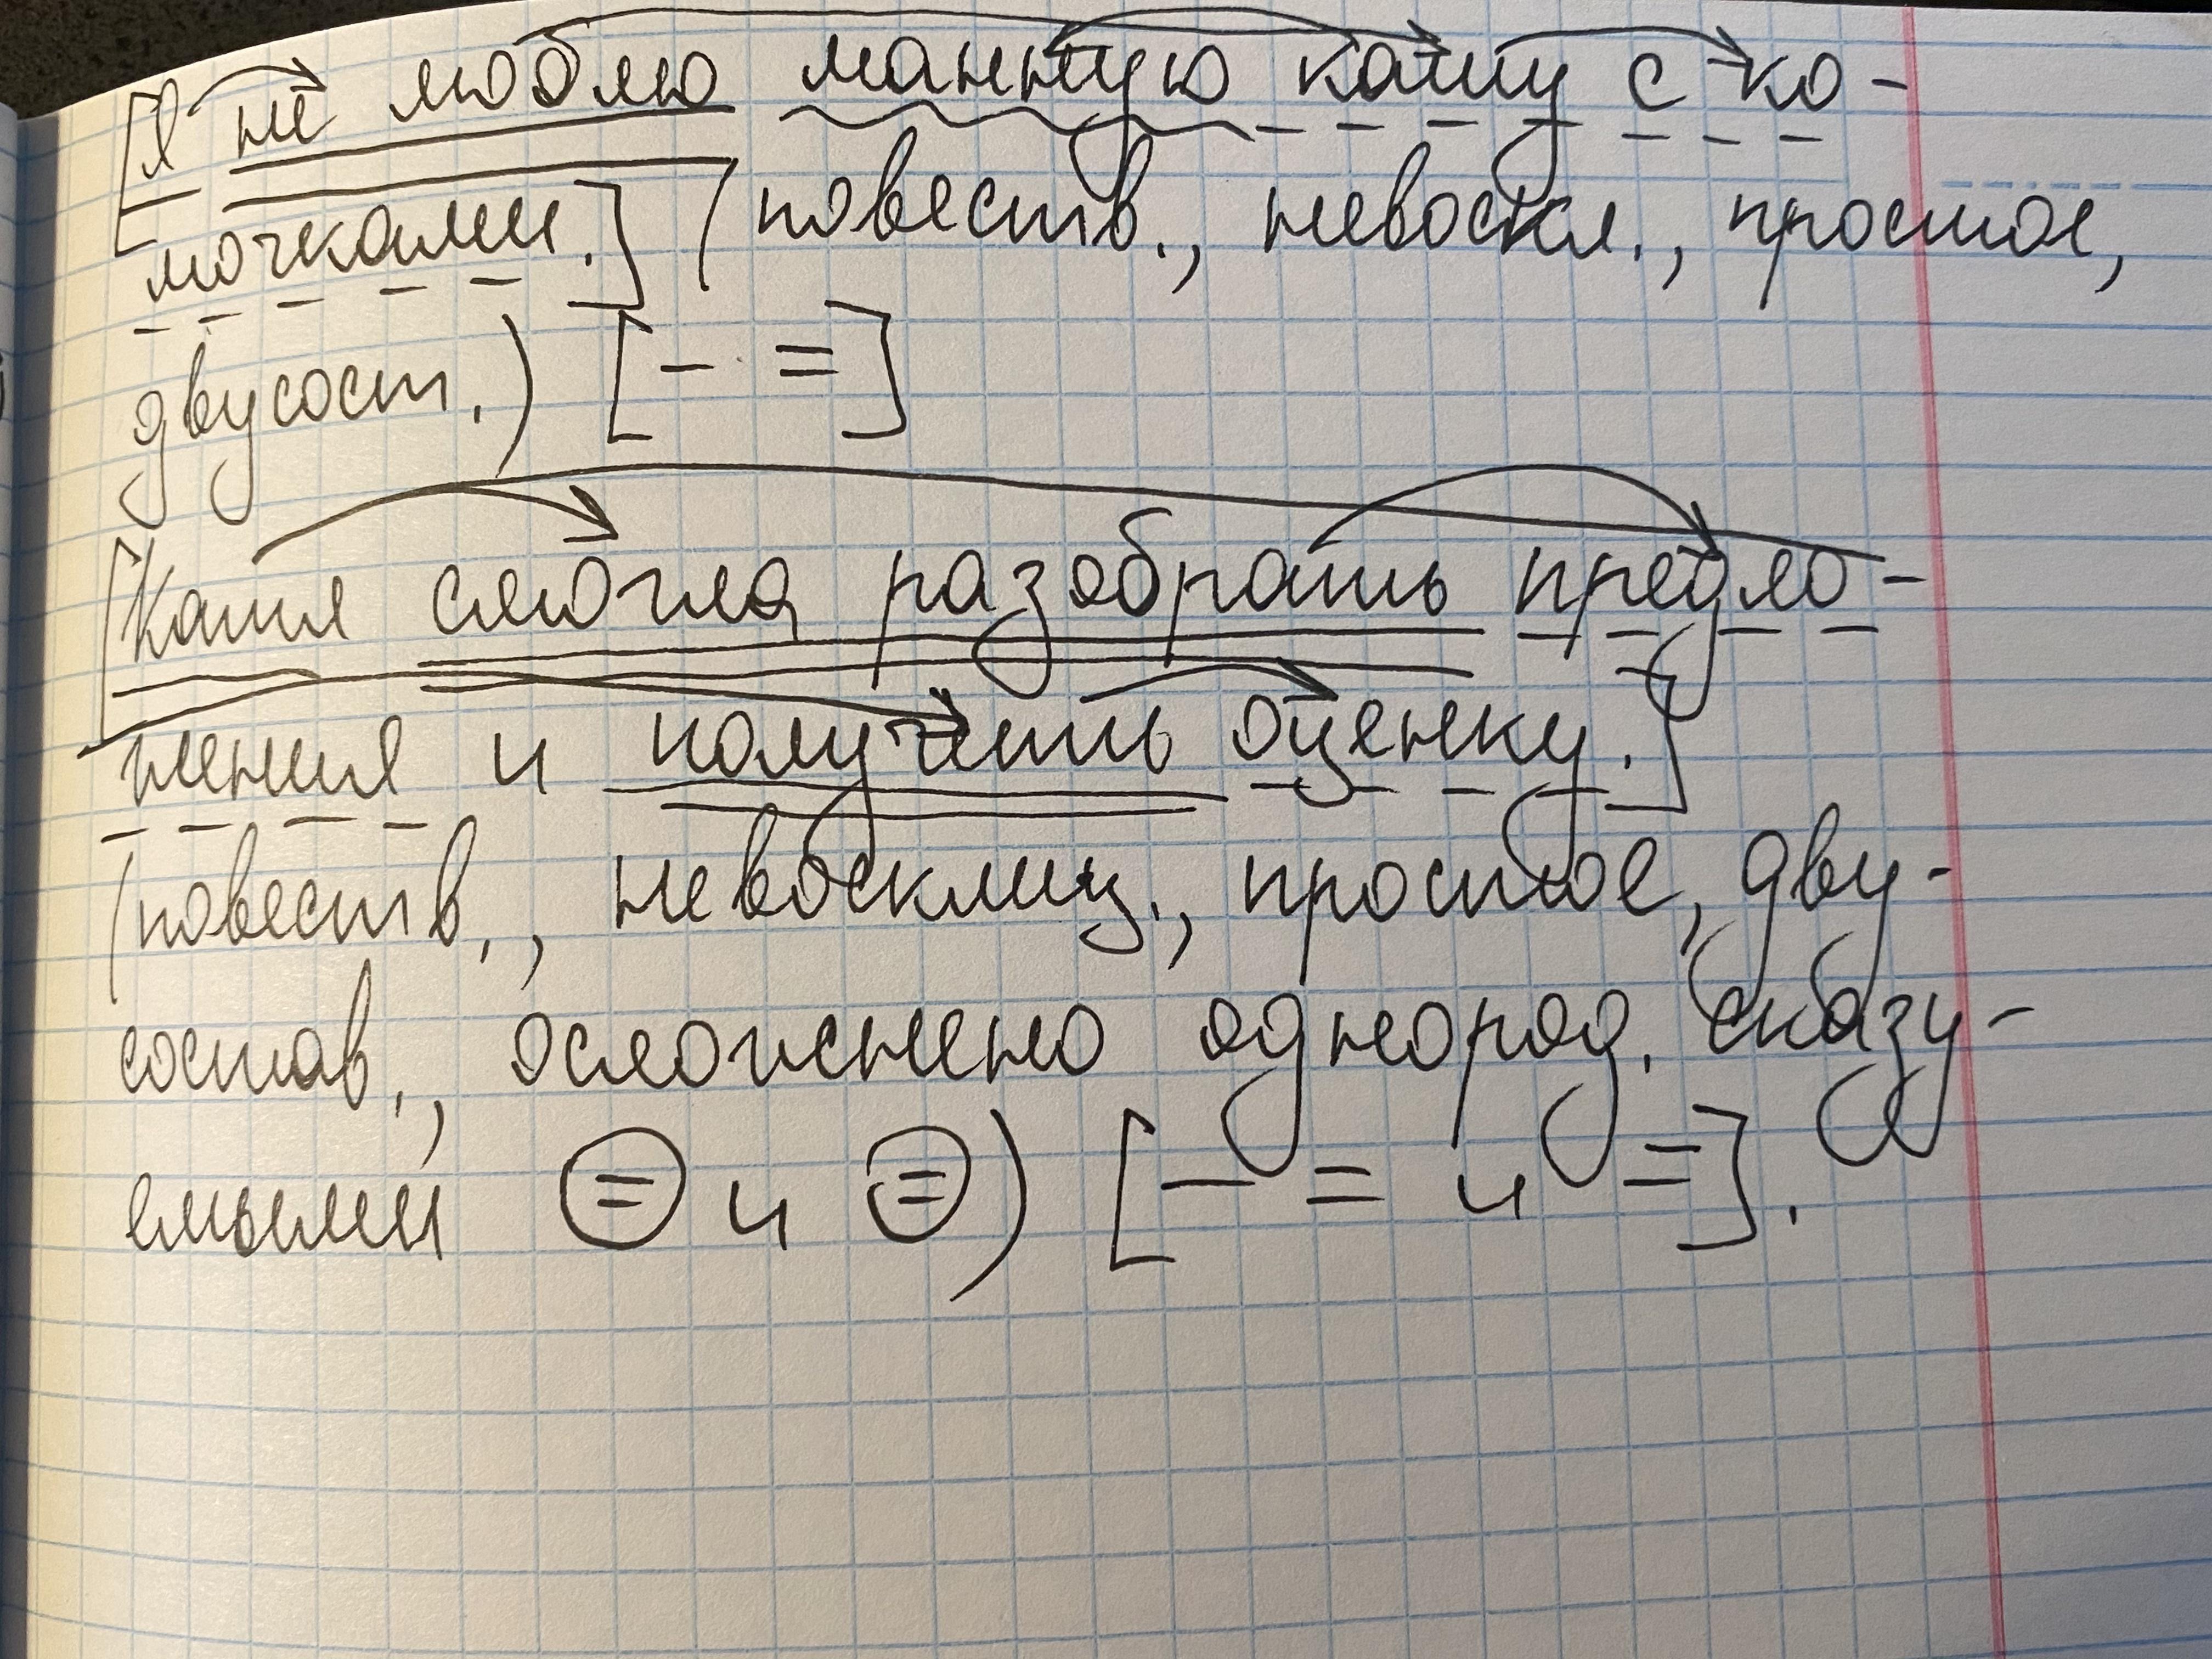 [Я не люблю манную кашу с ко-
мочками.] (повеств., невоскл., простое,
двусост.) [– =]
[Катя смогла разобрать предло-
жения и получить оценку.]
(повеств., невосклиц., простое, дву-
состав., осложнено однород. сказу-
емыми = и =) [– = и =].